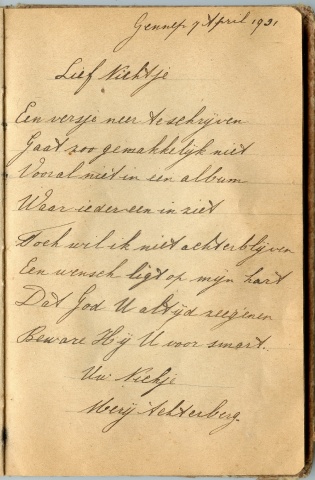 Gennep 7 April 1931
Lief Nichtje
Een versje neer te schrijven
Gaat zoo gemakkelijk niet
Vooral niet in een album
Waar ieder een in ziet
Toch wil ik niet achterblijven
Een wensch ligt op mijn hart
Dat God U altijd zeegenen
Beware Hij U voor smart.
Uw Nichje
Merij Achterberg.